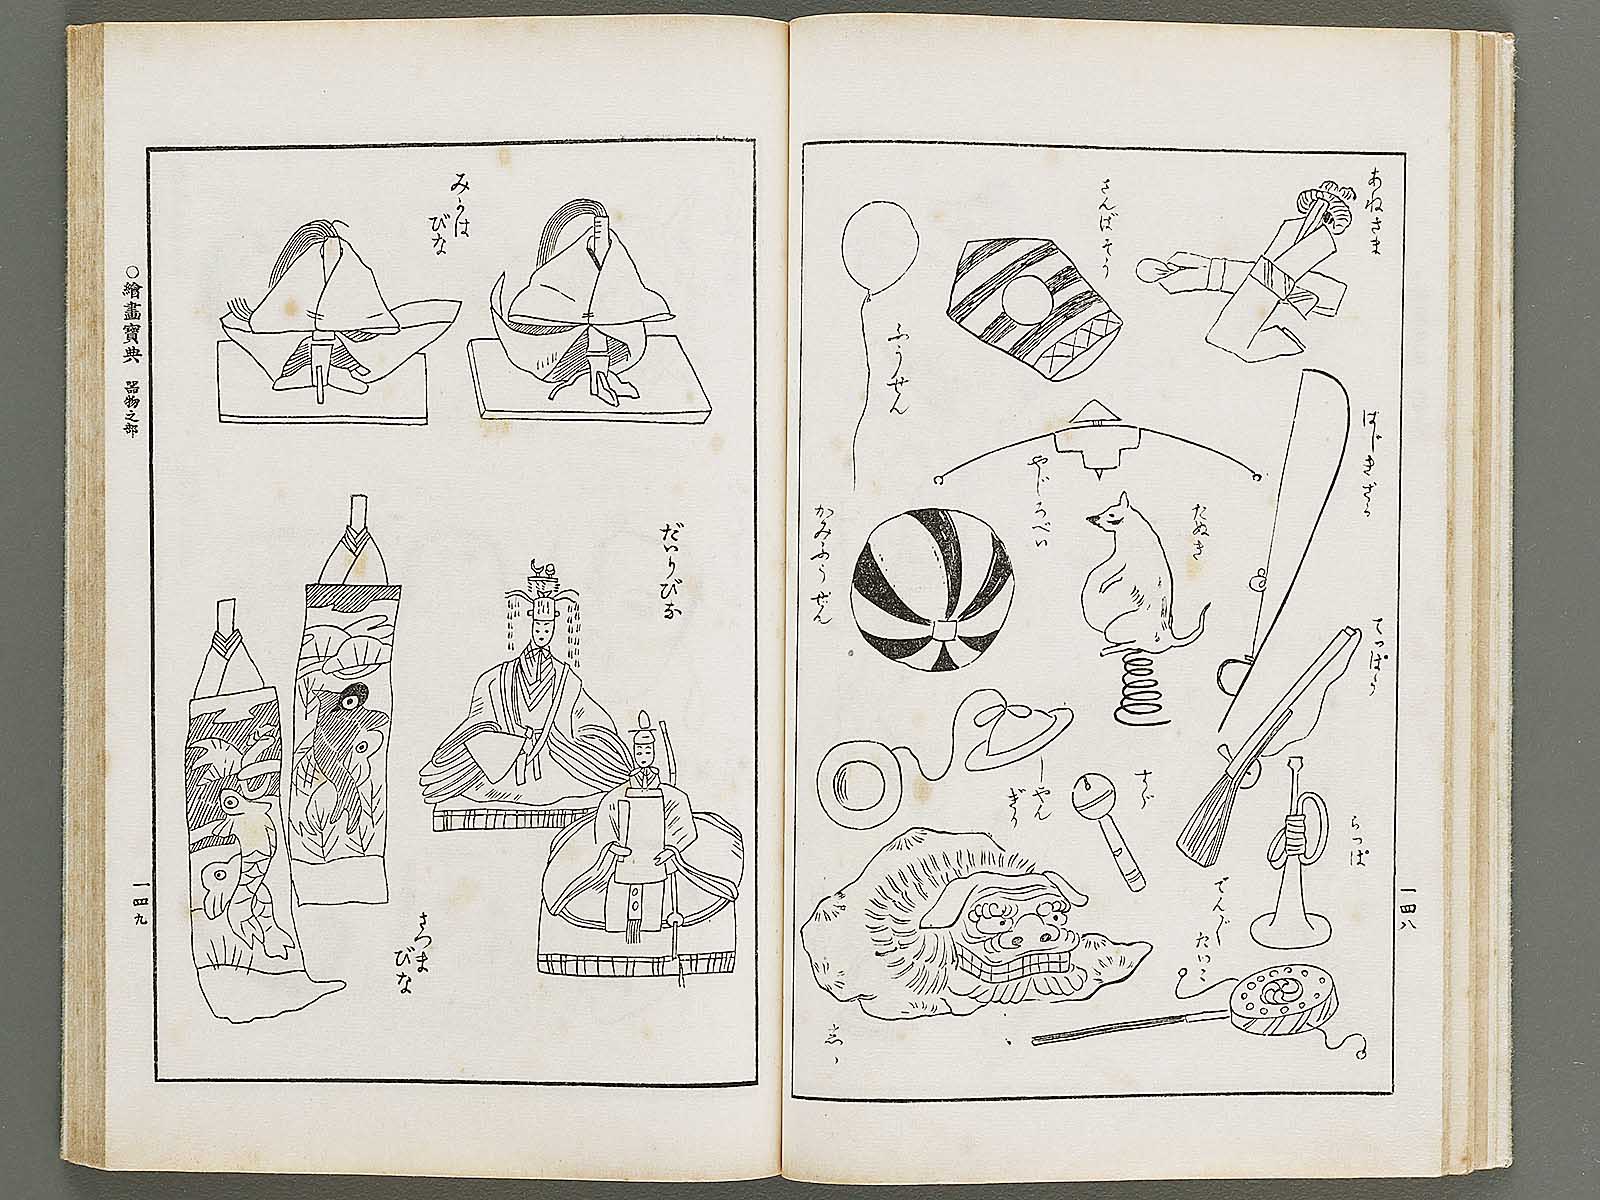 あねさま
さんばそう
ふうせん
はじきざる
やじろべい
たぬき
かみふうせん
てつぽう
すゞ
らつぱ
でんぐ〳〵
たいこ
一四八
みうは
びな
だいりびな
さつま
びな
○繪畫寶典 器物之部
一四九